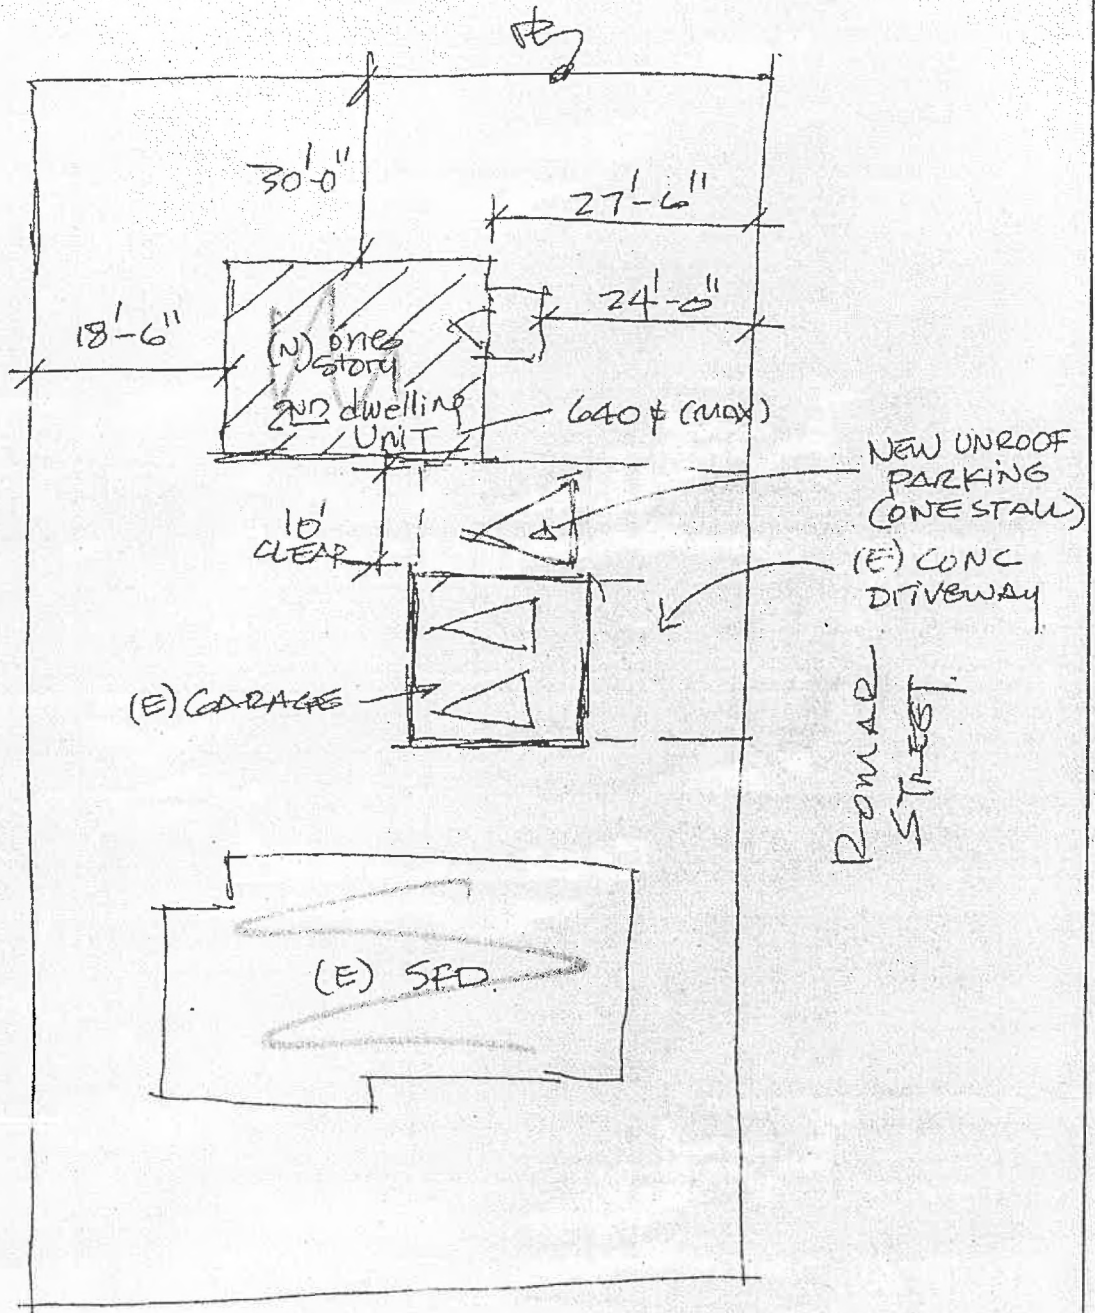 PL
30'-0"
27'-6"
24'-0"
18'-6"
(N) one
story
2ND dwelling
UNIT
640 ¢ (MAX)
NEW UNROOF
PARKING
(ONE STALL)
10'
CLEAR
(E) CONC
DRIVEWAY
(E) GARAGE
STREET
(E) SFD.